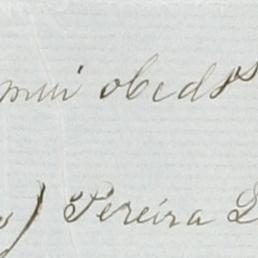 mui obed.s
) Pereira